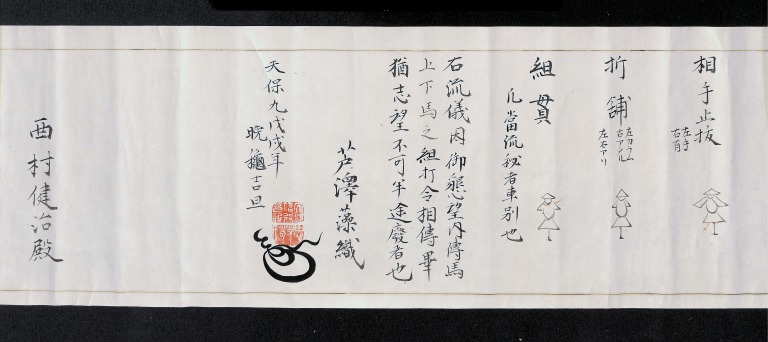 相手止抜
左手
右肩
折鋪
左カフム
右アフル
左右アリ
組貫
凡當流秘者車別也
右流儀因御懇望内傳馬
上下馬之組打令相傳畢
猶志望不可半途廢者也
芦澤藻織
天保九戊戌年
晩龝吉旦
西村健治殿